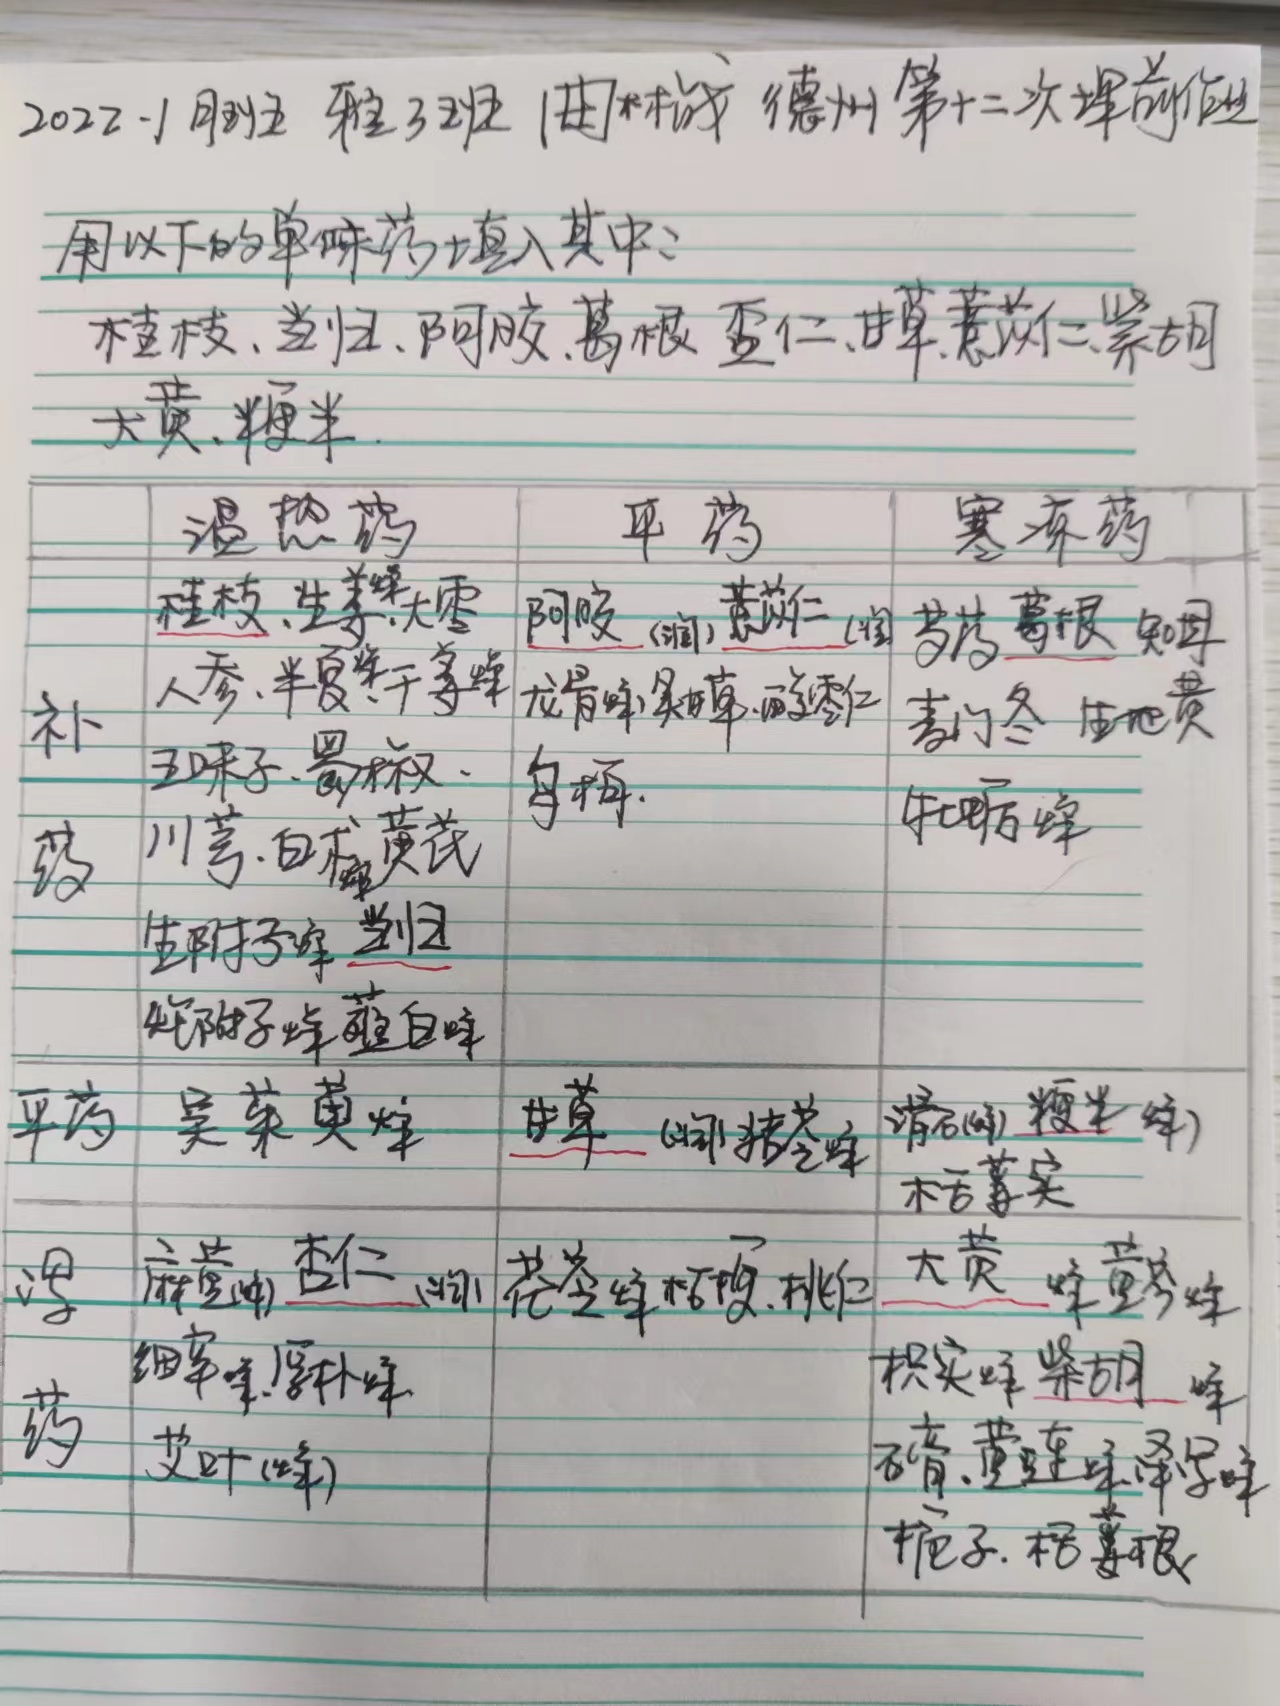 2022-1月班 雅3班 1 林成 德州 第十二次课前作业
用以下的单味药填入其中:
桂枝、当归、阿胶、葛根 杏仁、甘草、薏苡仁、柴胡
大黄、粳米.
温热药 平药 寒凉药
补药
桂枝、生姜燥、大枣
人参、半夏燥、干姜燥
五味子、蜀椒、
川芎、白术燥 黄芪
生附子燥 当归
炮附子燥 薤白燥
阿胶(润) 薏苡仁(润
龙骨燥, 炙甘草、酸枣仁
乌梅.
芍药 葛根 知母
麦门冬 生地黄
牡蛎 燥
平药 吴茱萸燥 甘草(润) 猪苓燥 滑石(燥) 粳米(燥)
栝蒌实
泻药
麻黄(燥) 杏仁(润)
细辛燥、厚朴燥
艾叶(燥)
茯苓燥 桔梗、桃仁
大黄 燥 黄芩燥
枳实燥 柴胡 燥
石膏、黄连燥、泽泻燥
栀子、栝蒌根